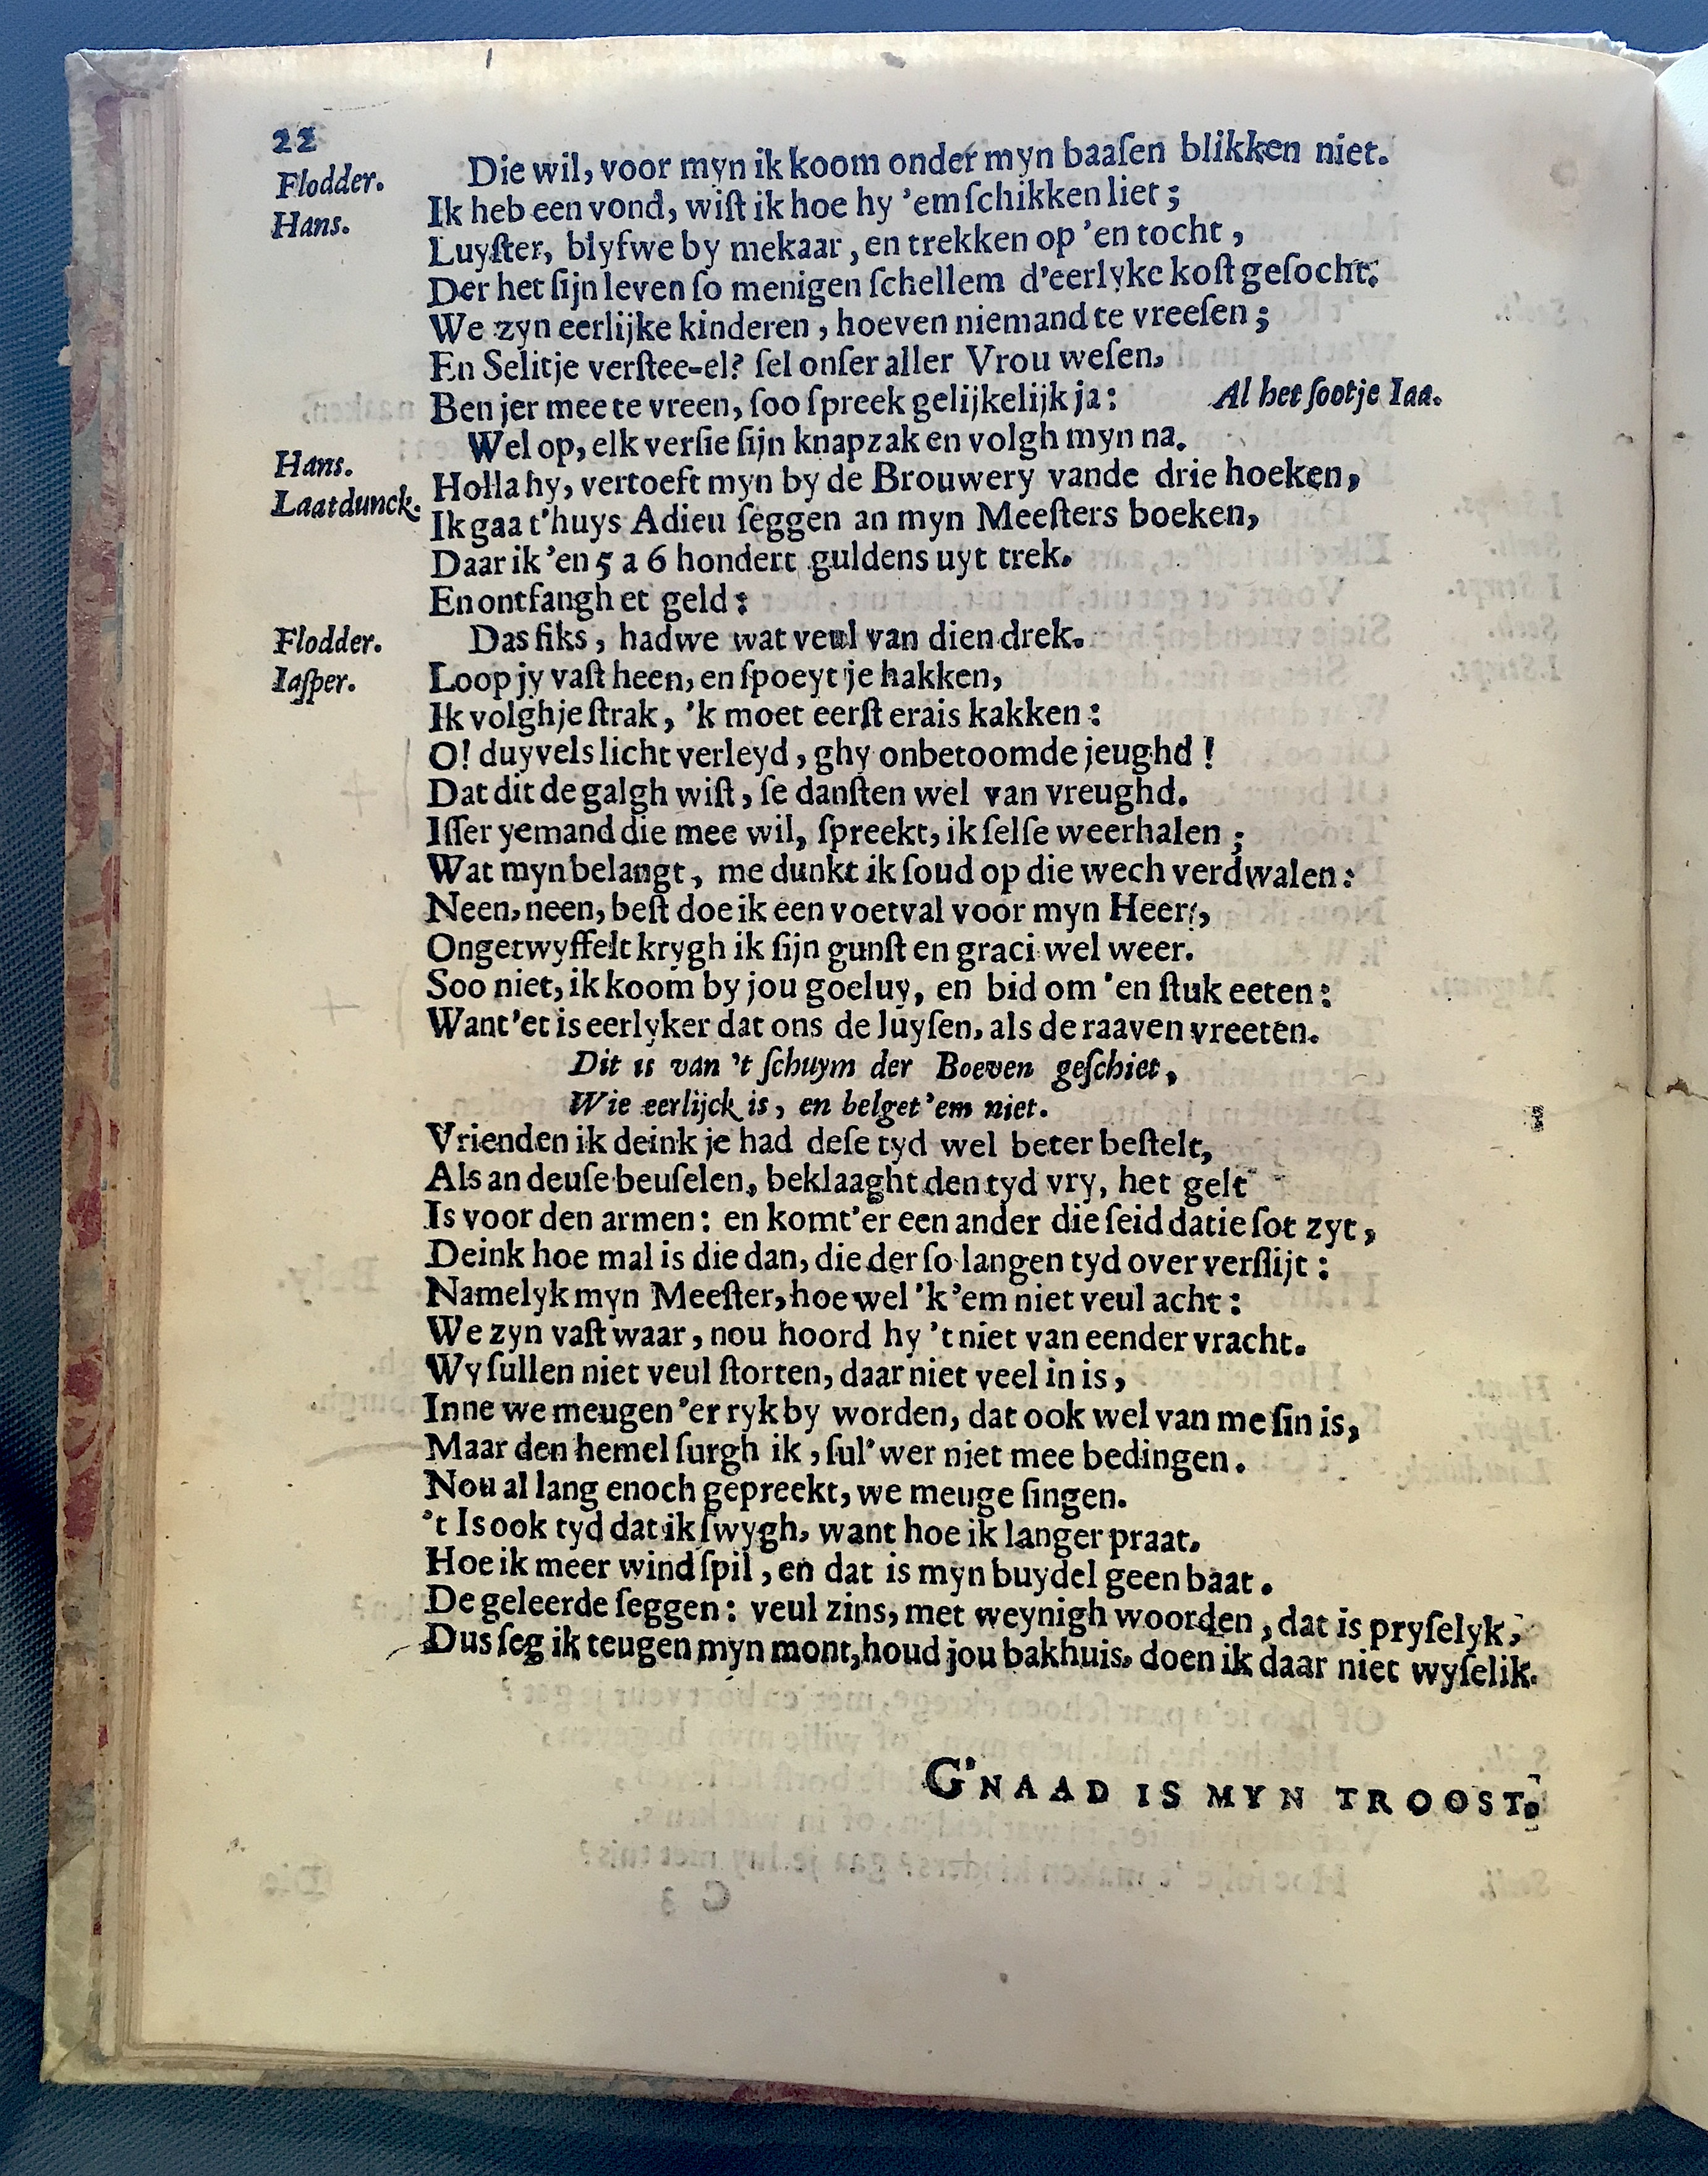 22
Flodder. Die wil, voor myn ik koom onder myn baaſen blikken niet.
Hans. Ik heb een vond, wiſt ik hoe hy 'em ſchikken liet;
Luyſter, blyfwe by mekaar, en trekken op 'en tocht,
Der het ſijn leven ſo menigen ſchellem d'eerlyke koſt geſocht.
We zyn eerlijke kinderen, hoeven niemand te vreeſen;
En Selitje verſtee-el? ſel onſer aller Vrou weſen,
Ben jer mee te vreen, ſoo ſpreek gelijkelijk ja: Al het ſootje Iaa.
Hans. Wel op, elk verſie ſijn knapzak en volgh myn na.
Laatdunck. Holla hy, vertoeft myn by de Brouwery vande drie hoeken,
Ik gaa t'huys Adieu ſeggen an myn Meeſters boeken,
Daar ik 'en 5 a 6 hondert guldens uyt trek.
En ontfangh et geld:
Flodder. Das fiks, hadwe wat veul van dien drek.
Iaſper. Loop jy vaſt heen, en ſpoeyt je hakken,
Ik volgh je ſtrak, 'k moet eerſt erais kakken:
O! duyvels licht verleyd, ghy onbetoomde jeughd!
Dat dit de galgh wiſt, ſe danſten wel van vreughd.
Iſſer yemand die mee wil, ſpreekt, ik ſelſe weerhalen;
Wat myn belangt, me dunkt ik ſoud op die wech verdwalen:
Neen, neen, beſt doe ik een voetval voor myn Heer,
Ongetwyffelt krygh ik ſijn gunſt en graci wel weer.
Soo niet, ik koom by jou goeluy, en bid om 'en ſtuk eeten:
Want 'et is eerlyker dat ons de luyſen, als de raaven vreeten.
Dit is van 't ſchuym der Boeven geſchiet,
Wie eerlijck is, en belget 'em niet.
Vrienden ik deink je had deſe tyd wel beter beſtelt,
Als an deuſe beuſelen, beklaaght den tyd vry, het gelt
Is voor den armen: en komt'er een ander die ſeid datie ſot zyt,
Deink hoe mal is die dan, die der ſo langen tyd over verſlijt:
Namelyk myn Meeſter, hoe wel 'k 'em niet veul acht:
We zyn vaſt waar, nou hoord hy 't niet van eender vracht.
Wy ſullen niet veul ſtorten, daar niet veel in is,
Inne we meugen 'er ryk by worden, dat ook wel van me ſin is,
Maar den hemel ſurgh ik, ſul'wer niet mee bedingen.
Nou al lang enoch gepreekt, we meuge ſingen.
't Is ook tyd dat ik ſwygh, want hoe ik langer praat.
Hoe ik meer wind ſpil, en dat is myn buydel geen baat.
De geleerde ſeggen: veul zins, met weynigh woorden, dat is pryſelyk,
Dus ſeg ik teugen myn mont, houd jou bakhuis, doen ik daar niet wyſelik.
G'NAAD IS MYN TROOST.